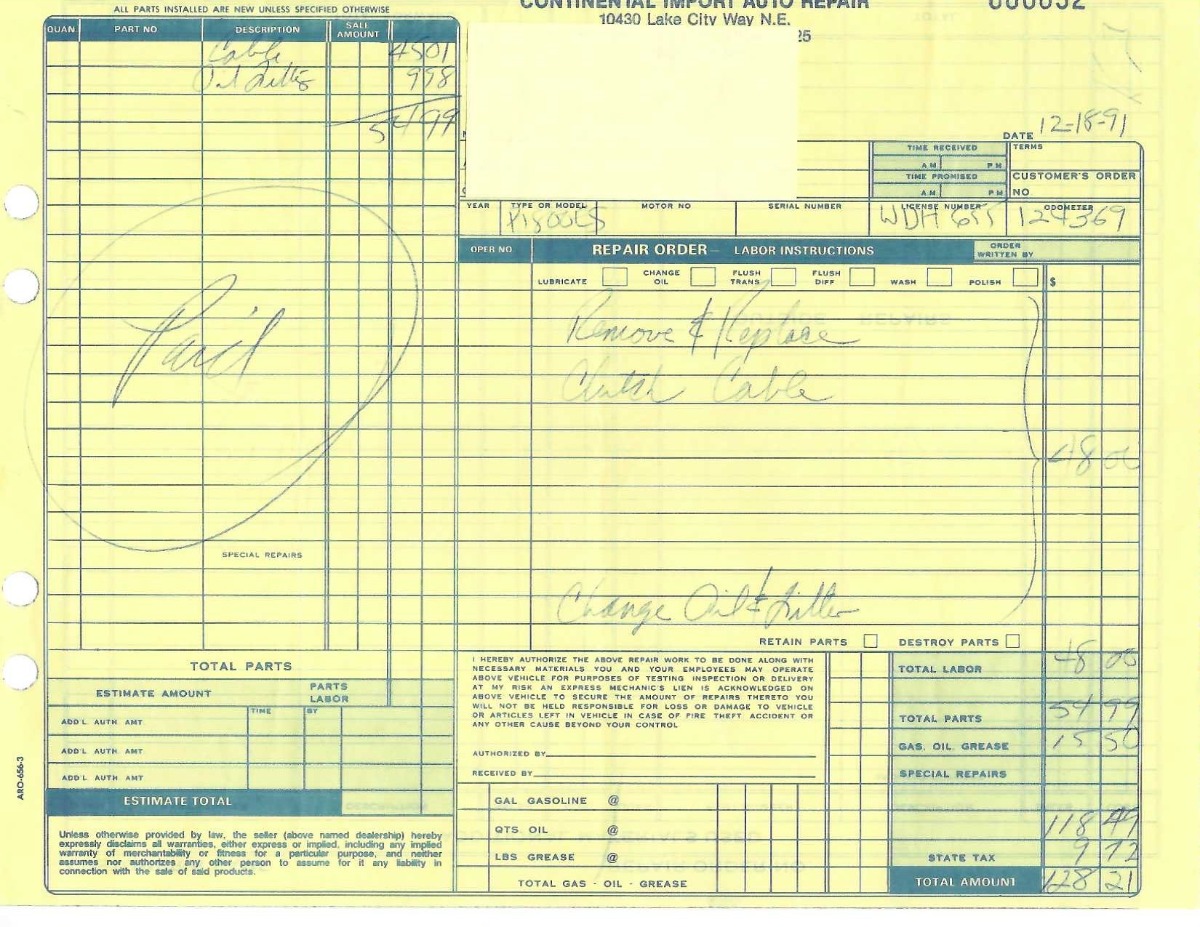 ALL PARTS INSTALLED ARE NEW UNLESS SPECIFIED OTHERWISE
QUAN. PART NO DESCRIPTION SALE AMOUNT
Cable 4501
Oil Filter 998
54 99
Paid
SPECIAL REPAIRS
TOTAL PARTS
ESTIMATE AMOUNT PARTS LABOR
TIME BY
ADD'L AUTH AMT
ADD'L AUTH AMT
ADD'L AUTH AMT
ESTIMATE TOTAL
Unless otherwise provided by law, the seller (above named dealership) hereby
expressly disclaims all warranties, either express or implied, including any implied
warranty of merchantability or fitness for a particular purpose, and neither
assumes nor authorizes any other person to assume for it any liability in
connection with the sale of said products.
ARO-656-3
CONTINENTAL IMPORT AUTO REPAIR
10430 Lake City Way N.E.
25
000032
DATE 12-18-91
TIME RECEIVED TERMS
A M P M
TIME PROMISED CUSTOMER'S ORDER
A M P M NO
YEAR TYPE OR MODEL MOTOR NO SERIAL NUMBER LICENSE NUMBER ODOMETER
WDH 655 124369
OPER NO REPAIR ORDER — LABOR INSTRUCTIONS ORDER WRITTEN BY
LUBRICATE CHANGE OIL FLUSH TRANS FLUSH DIFF WASH POLISH $
Remove & Replace
Clutch Cable
48 00
Change Oil & Filter
RETAIN PARTS DESTROY PARTS
I HEREBY AUTHORIZE THE ABOVE REPAIR WORK TO BE DONE ALONG WITH
NECESSARY MATERIALS YOU AND YOUR EMPLOYEES MAY OPERATE
ABOVE VEHICLE FOR PURPOSES OF TESTING INSPECTION OR DELIVERY
AT MY RISK AN EXPRESS MECHANIC'S LIEN IS ACKNOWLEDGED ON
ABOVE VEHICLE TO SECURE THE AMOUNT OF REPAIRS THERETO YOU
WILL NOT BE HELD RESPONSIBLE FOR LOSS OR DAMAGE TO VEHICLE
OR ARTICLES LEFT IN VEHICLE IN CASE OF FIRE THEFT ACCIDENT OR
ANY OTHER CAUSE BEYOND YOUR CONTROL
AUTHORIZED BY
RECEIVED BY
GAL GASOLINE @
QTS. OIL @
LBS GREASE @
TOTAL GAS - OIL - GREASE
TOTAL LABOR 48 00
TOTAL PARTS 54 99
GAS. OIL. GREASE 15 50
SPECIAL REPAIRS
118 49
STATE TAX 9 72
TOTAL AMOUNT 128 21